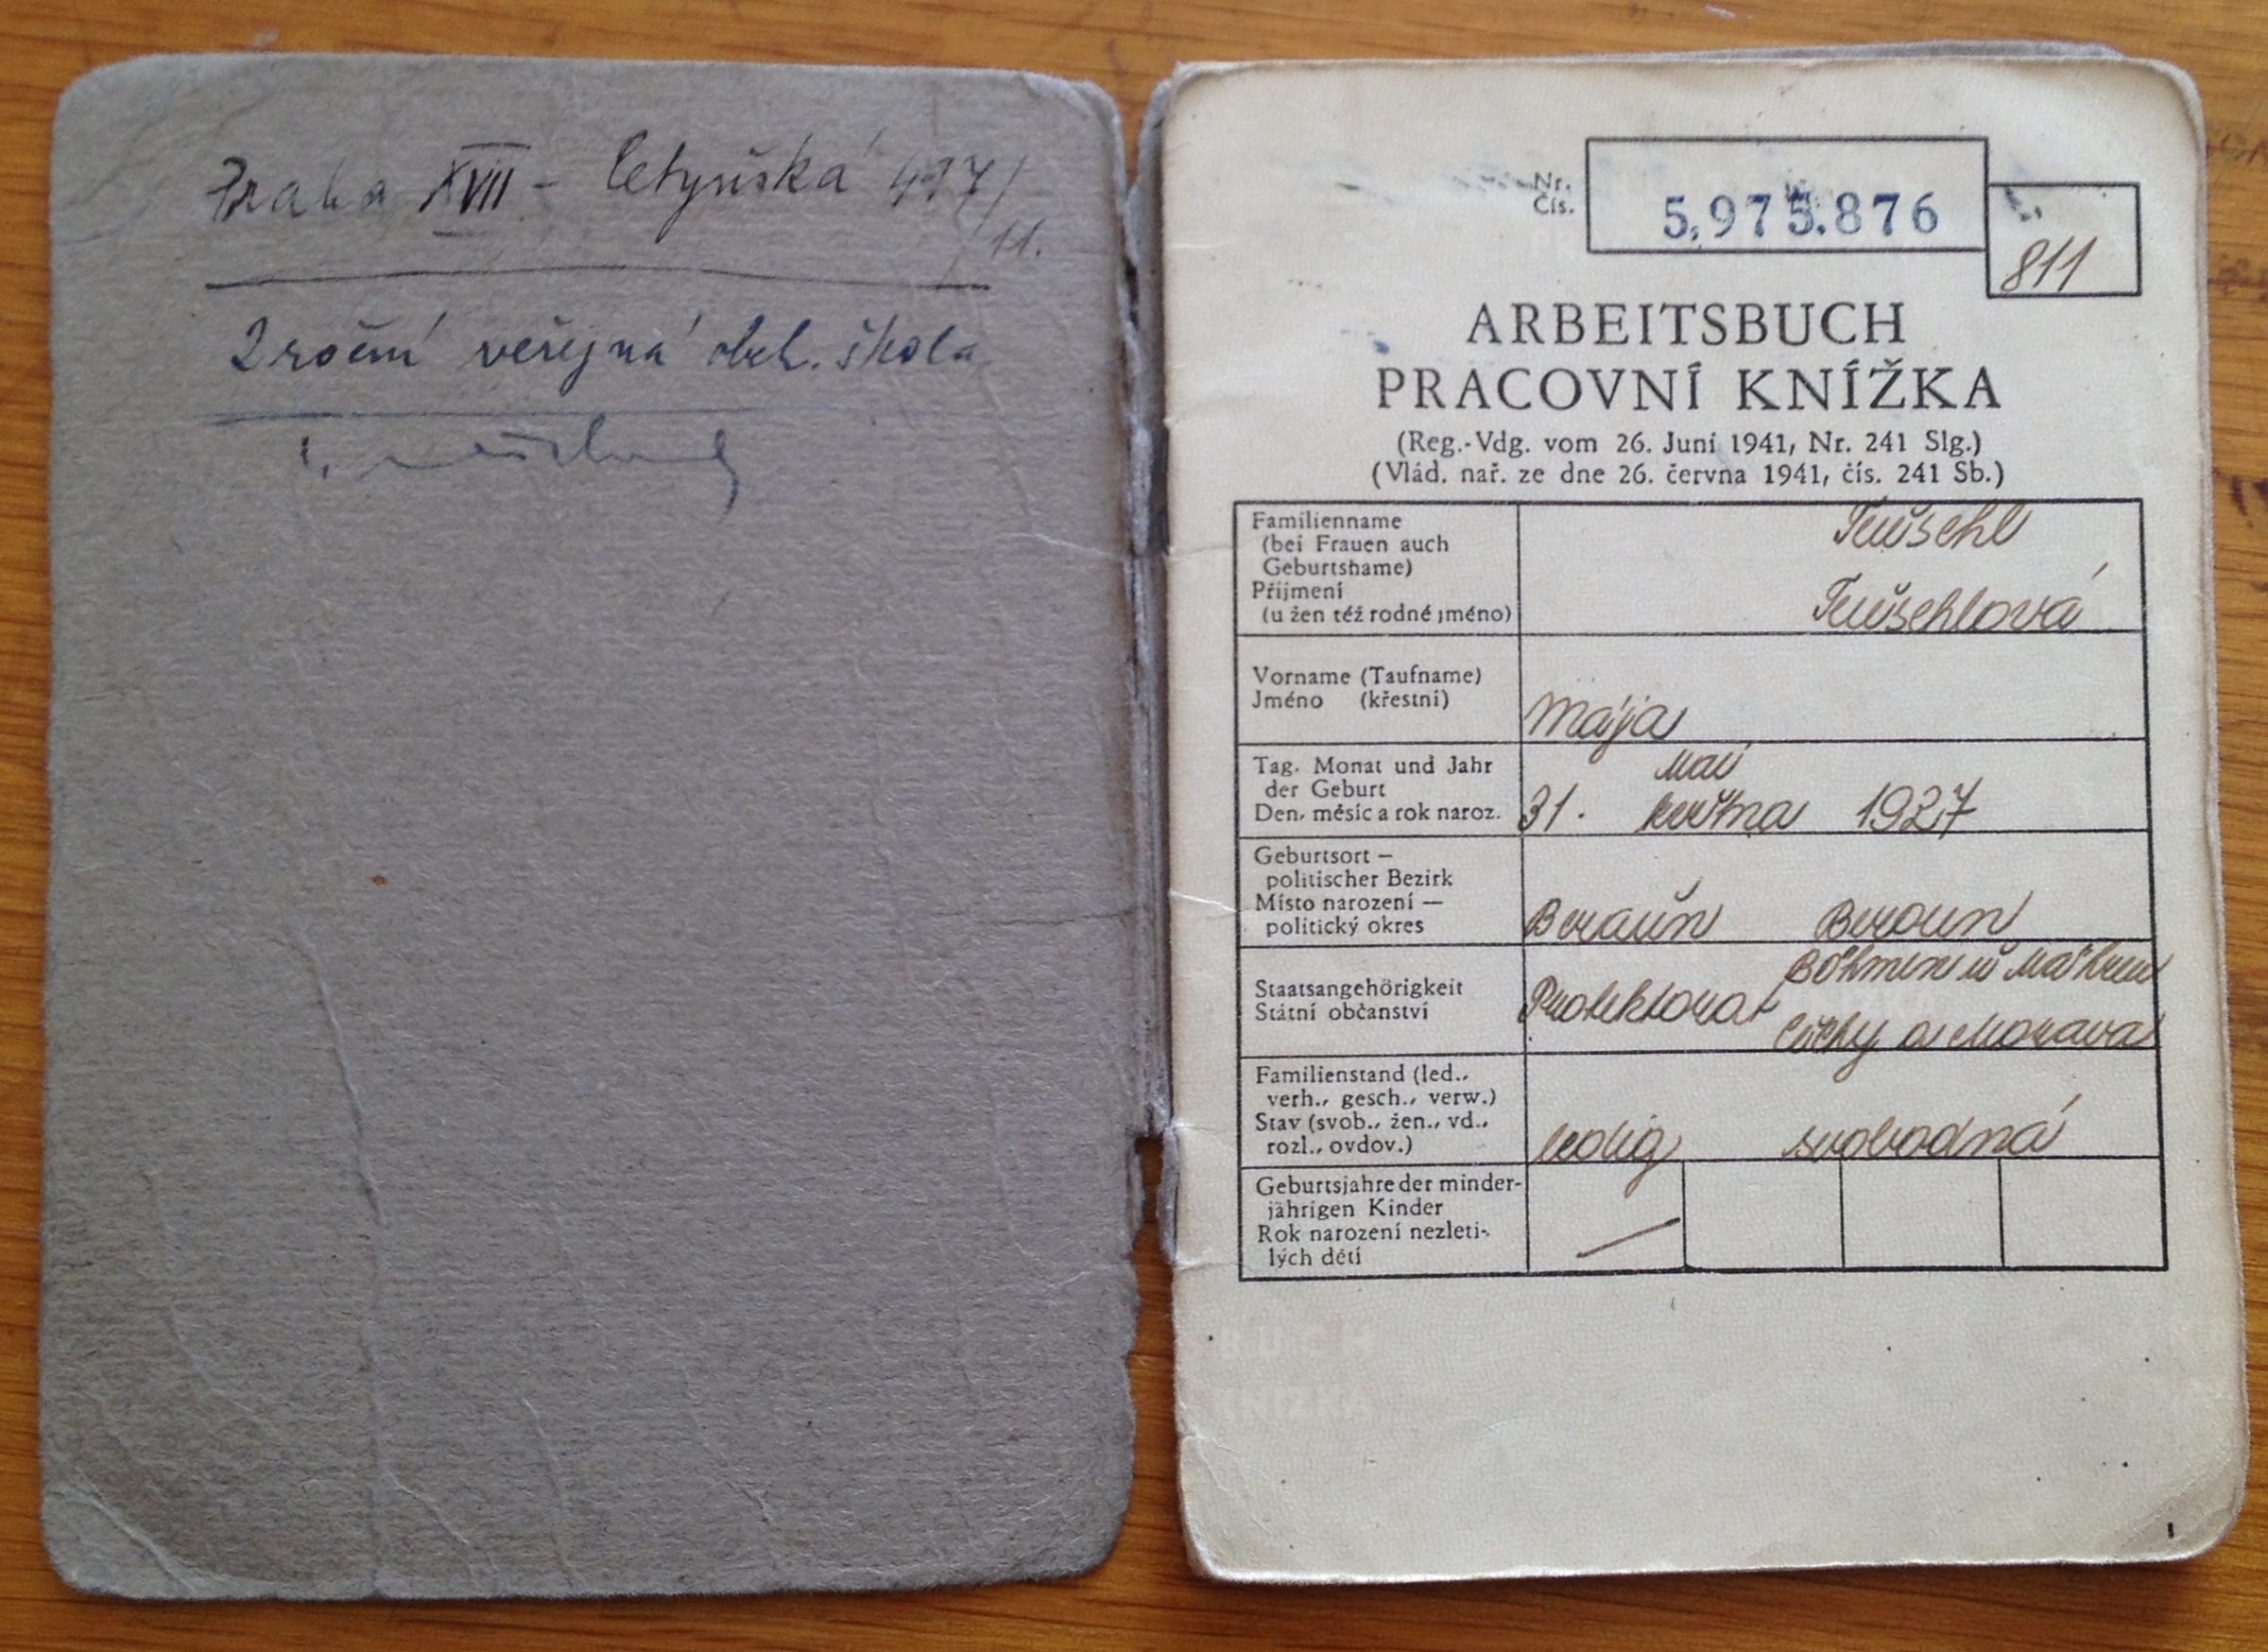 Praha XVII - Letyňská 417/
11.
2 roční veřejná obch. škola
Nr.
Čís.
5,975.876
811
ARBEITSBUCH
PRACOVNÍ KNÍŽKA
(Reg.-Vdg. vom 26. Juni 1941, Nr. 241 Slg.)
(Vlád. nař. ze dne 26. června 1941, čís. 241 Sb.)
Familienname
(bei Frauen auch
Geburtsname)
Příjmení
(u žen též rodné jméno)
Teuschl
Teuschlová
Vorname (Taufname)
Jméno (křestní)
Mája
Tag, Monat und Jahr
der Geburt
Den, měsíc a rok naroz.
Mai
31. května 1927
Geburtsort —
politischer Bezirk
Místo narození —
politický okres
Beraun Beroun
Staatsangehörigkeit
Státní občanství
Böhmen u Mähren
Protektorat
Čechy a Morava
Familienstand (led.,
verh., gesch., verw.)
Stav (svob., žen., vd.,
rozl., ovdov.)
ledig svobodná
Geburtsjahre der minder-
jährigen Kinder
Rok narození nezleti-
lých dětí
1